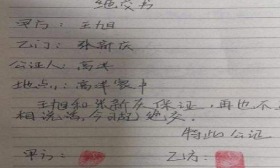 绝交书
甲方：王旭
乙方：张新庆
公证人：高考
地点：高考家中
王旭和张新庆保证，再也不
相说话，今日起绝交。
特此公证
甲方：
乙方：